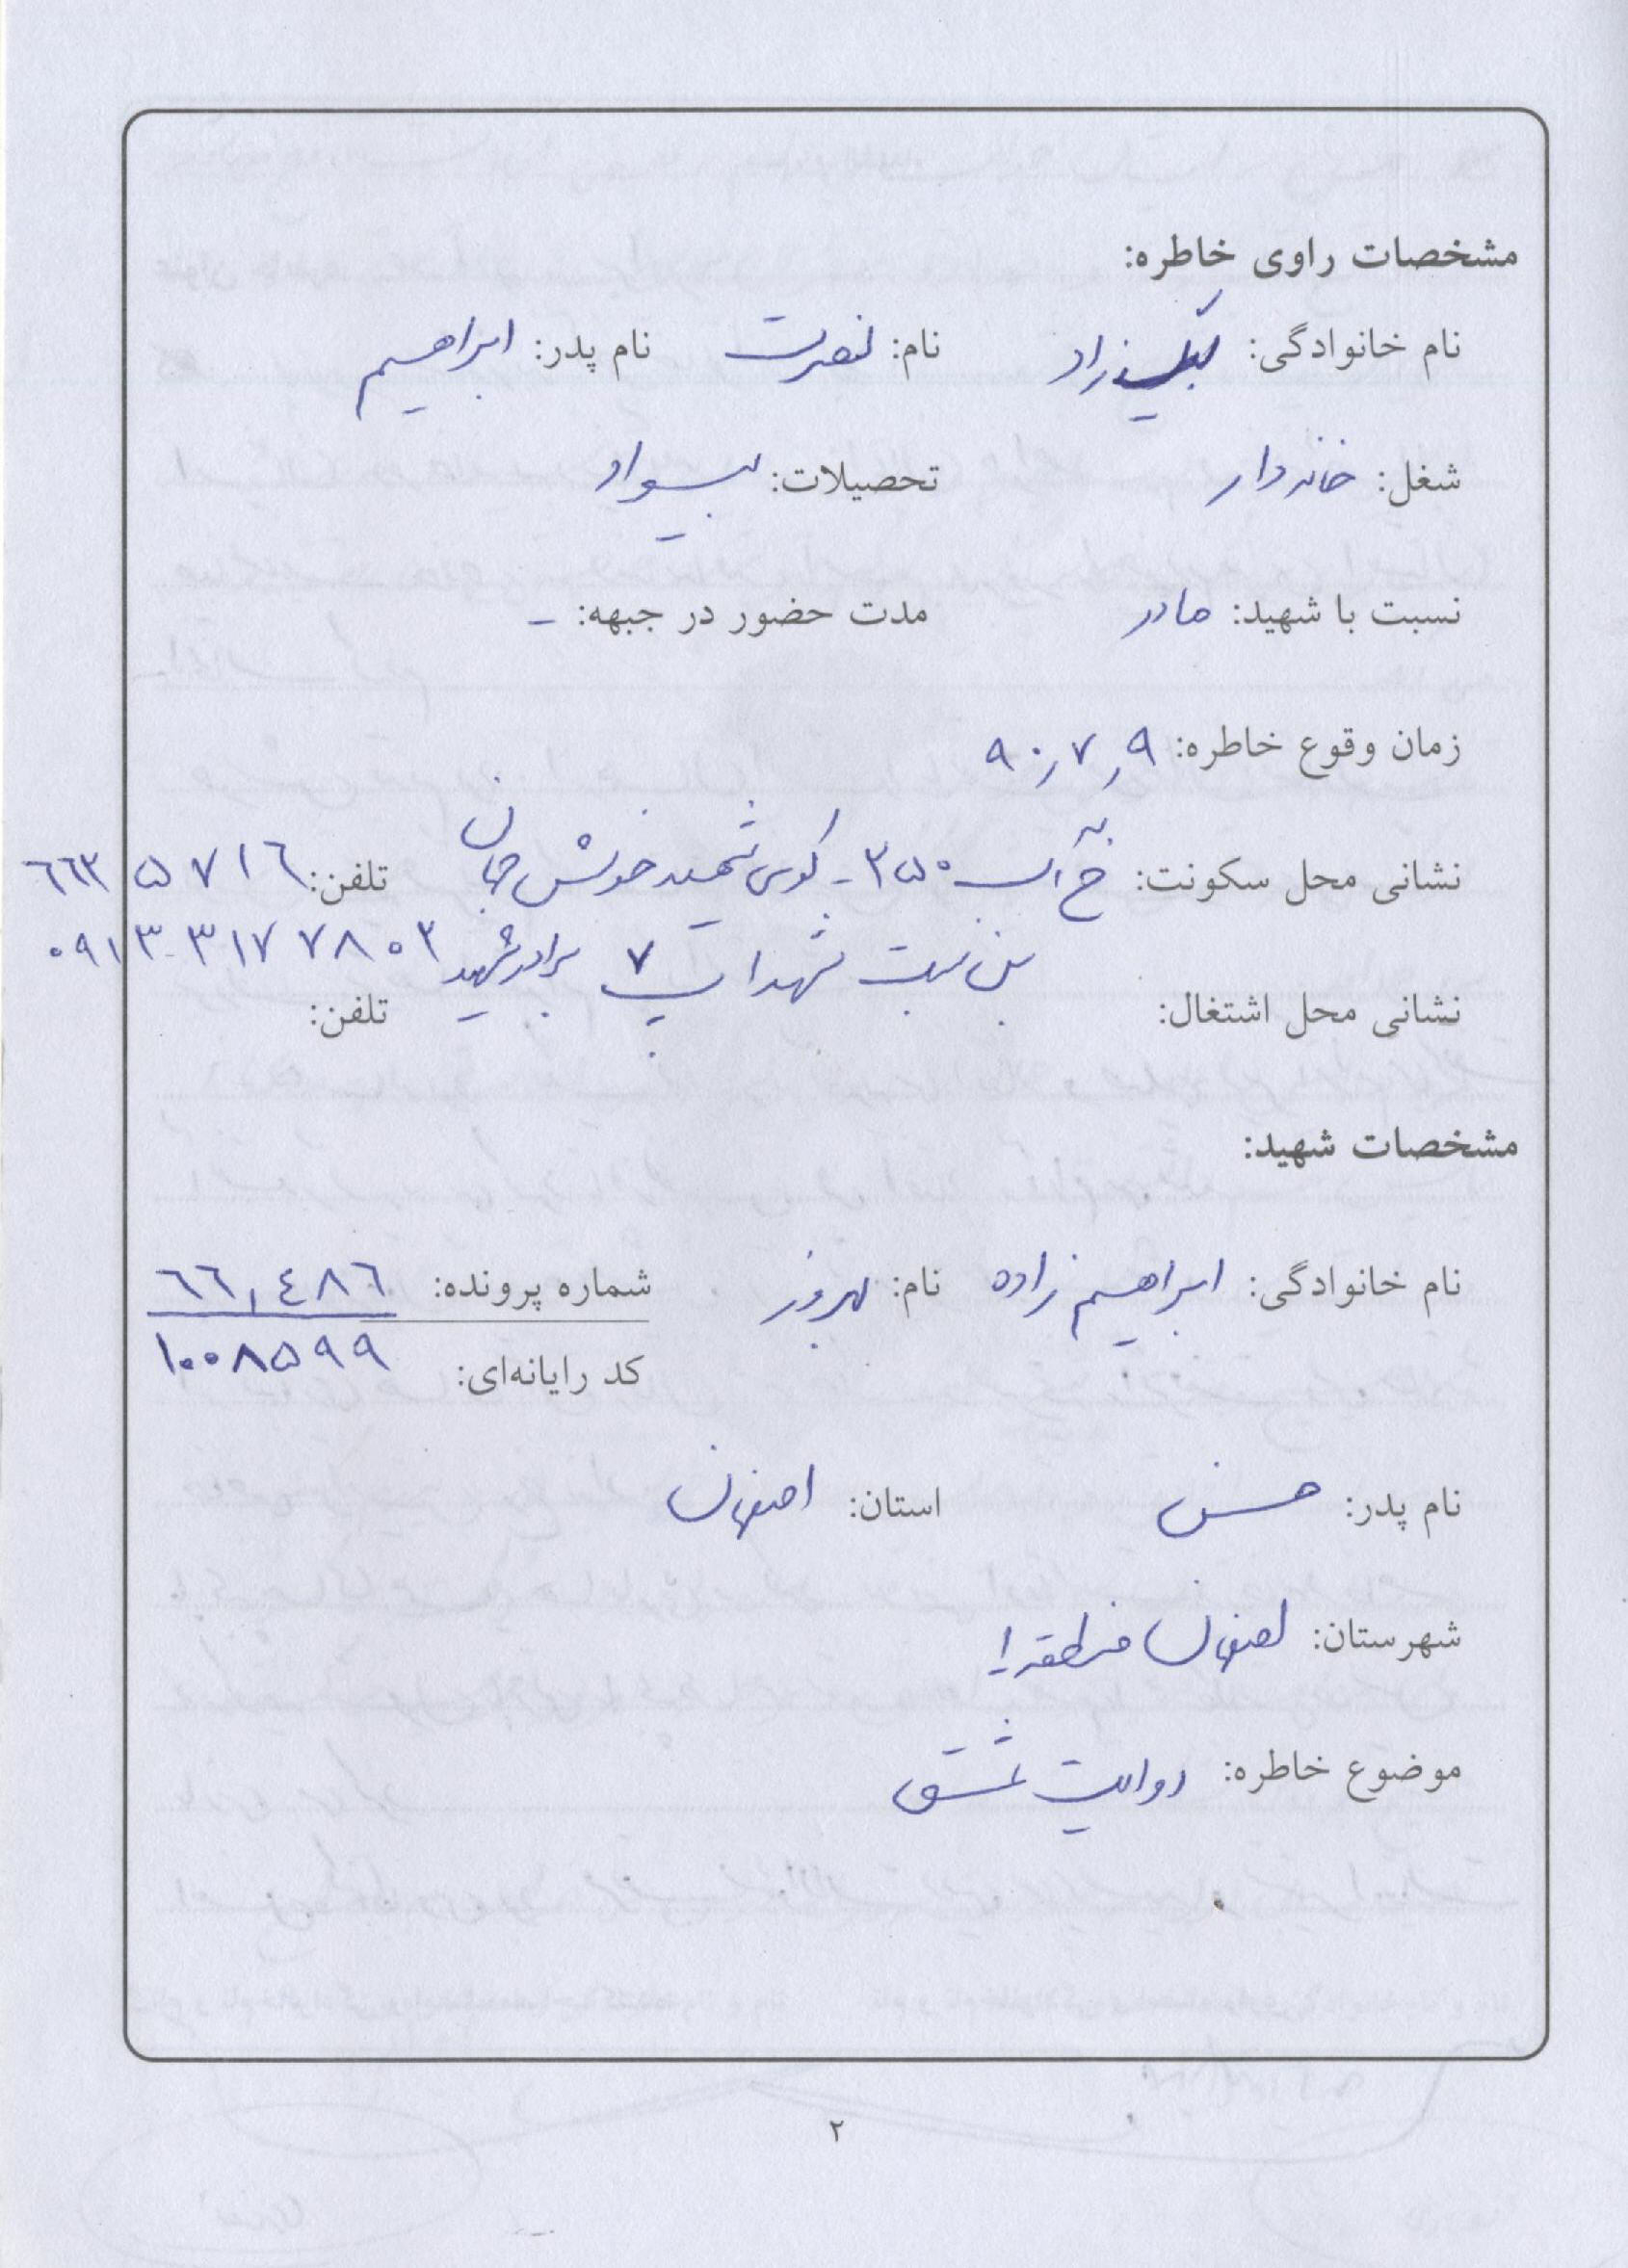 مشخصات راوی خاطره:
نام خانوادگی: نام: نصرت نام پدر: ابراهیم
شغل: خانه دار تحصیلات: بیسواد
نسبت با شهید: مادر مدت حضور در جبهه: -
زمان وقوع خاطره: ۹۰٫۷٫۹
نشانی محل سکونت: خ آب ۲۵۰ - کوی شهید تلفن: ۶۶۳۵۷۱۶
بن بست شهدا پ ۷ برادر شهید ۰۹۱۳-۳۱۷۷۸۰۲
نشانی محل اشتغال: تلفن:
مشخصات شهید:
نام خانوادگی: ابراهیم زاده نام: بهروز شماره پرونده: ۶۶٫۴۸۶
کد رایانه‌ای: ۱۰۰۸۵۹۹
نام پدر: حسن استان: اصفهان
شهرستان: اصفهان منطقه ۱
موضوع خاطره: روایت عشق
۲